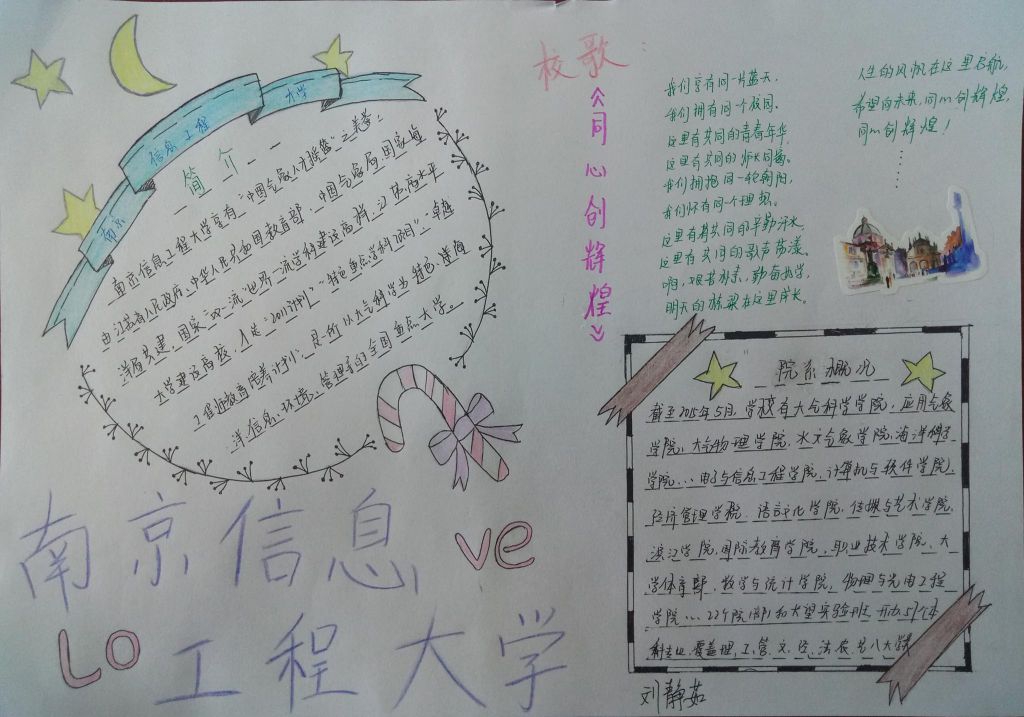 南京
信息工程
大学
简介
南京信息工程大学享有"中国气象人才摇篮"之美誉。
由江苏省人民政府、中华人民共和国教育部、中国气象局、国家海
洋局共建,国家"双一流"世界一流学科建设高校、江苏高水平
大学建设高校,入选"2011计划"、"特色重点学科项目"、"卓越
工程师教育培养计划",是一所以大气科学为特色、涵海
洋、信息、环境、管理等的全国重点大学。
校歌
《同心创辉煌》
我们享有同一片蓝天,
我们拥有同一个校园。
这里有共同的青春年华,
这里有共同的师长同窗。
我们拥抱同一轮朝阳,
我们怀有同一个理想。
这里有着共同的辛勤汗水,
这里有共同的歌声荡漾。
啊,艰苦朴素,勤奋好学,
明天的栋梁在这里成长。
人生的风帆在这里启航,
希望向未来,同心创辉煌,
同心创辉煌!
......
院系概况
截至2015年5月,学校有大气科学学院,应用气象
学院,大气物理学院,水文气象学院,海洋科学
学院...电子与信息工程学院,计算机与软件学院,
经济管理学院,语言文化学院,传媒与艺术学院,
滨江学院,国际教育学院,职业技术学院,大
学体育部,数学与统计学院,物理与光电工程
学院...22个院(部)和大望实验班,开办57个本
科专业,覆盖理、工、管、文、经、法、农、艺八大学科
南京信息
工程大学
Lo
ve
刘静茹